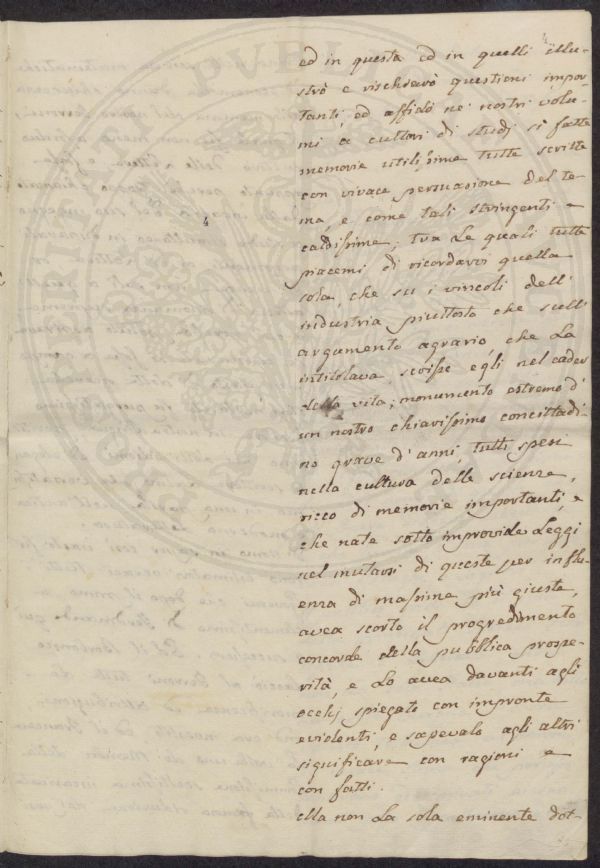 4
ed in questa ed in quelli illu-
strò e rischiarò questioni impor-
tanti, ed affidò ne' nostri volu-
mi a cultori di studj sì fatte
memorie utilissime tutte scritte
con vivace persuasione del te-
ma, e come tali stringenti e
caldissime; tra Le quali tutte
piacemi di ricordarvi quella
sola, che su i vincoli dell'
industria piuttosto che sull'
argumento agrario, che La
intitolava, scrisse egli nel cader
della vita; monumento estremo d'
un nostro chiarissimo concittadi-
no grave d'anni, tutti spesi
nella cultura delle scienze,
ricco di memorie importanti, e
che nate sotto improvide Leggi
nel mutarsi di queste per influ-
enza di massime più giuste,
avea scorto il progredimento
concorde della pubblica prospe-
rità, e Lo avea davanti agli
occhj spiegato con impronte
evidenti, e sapevalo agli altri
significare con ragioni e
con fatti.
ella non La sola eminente dot-